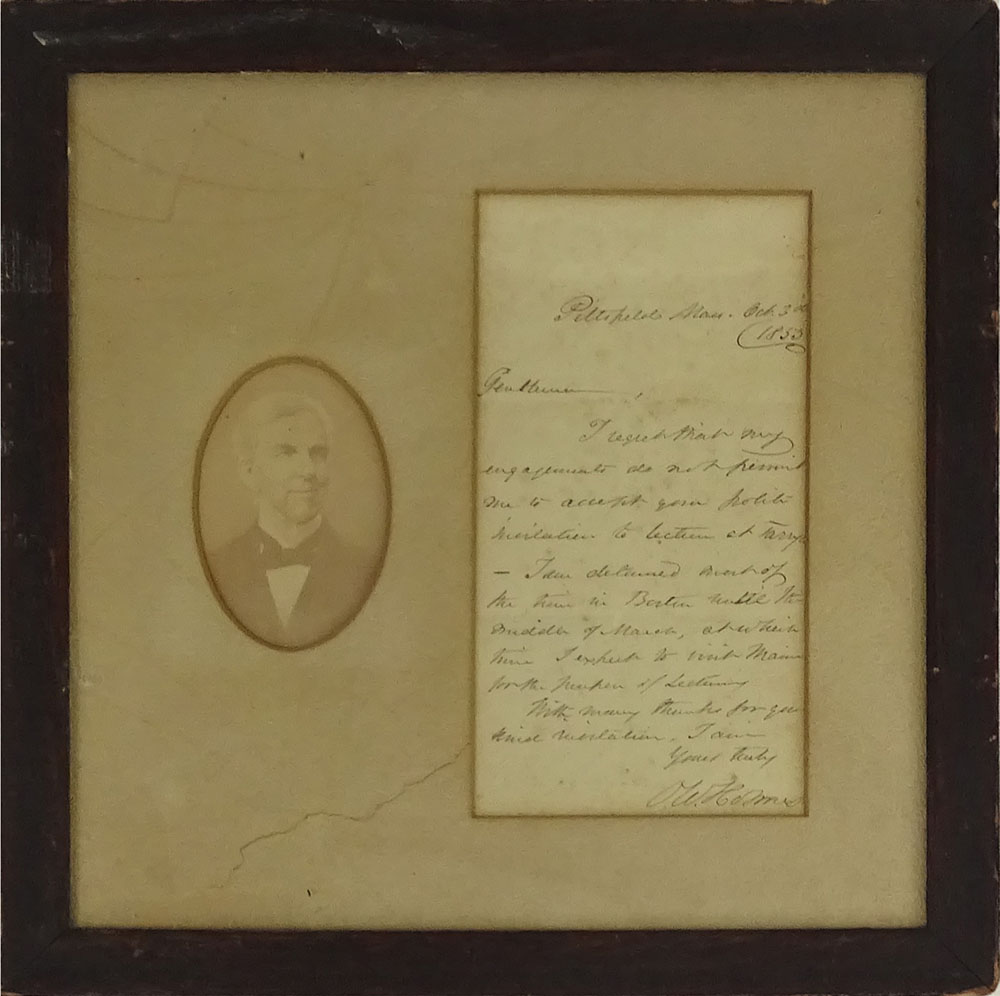 Pittsfield Mass. Oct. 3d
1853
Gentlemen,
I regret that my
engagements do not permit
me to accept your polite
invitation to lecture at
— I am detained most of
the time in Boston until the
middle of March, at which
time I expect to visit Maine
for the purpose of Lecturing
With many thanks for your
kind invitation, I am
Yours truly
O. W. Holmes